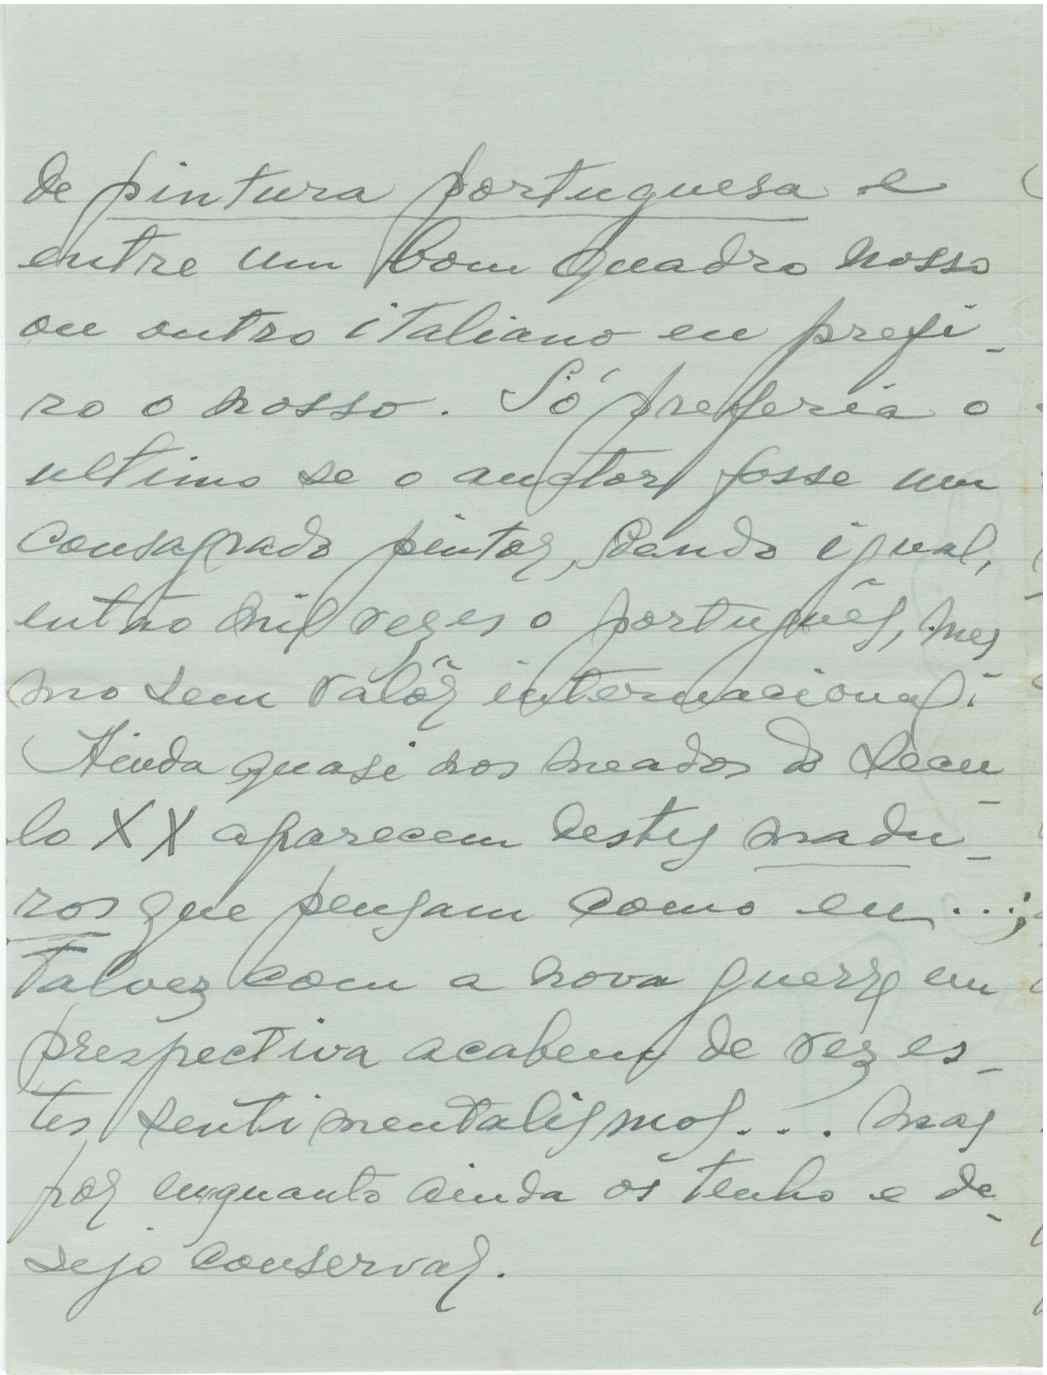 de pintura portuguesa e
entre um bom quadro nosso
ou outro italiano eu prefi-
ro o nosso. Só preferia o
ultimo se o auctor fosse um
consagrado pintor, sendo igual,
então mil vezes o português, mes
mo sem valôr internacional.
Ainda quasi nos meados do secu-
lo XX aparecem destes madu-
ros que pensam como eu...;
Talvez com a nova guerra em
prespectiva acabem de vez es-
tes sentimentalismos... mas
por enquanto ainda os tenho e de-
sejo conservar.